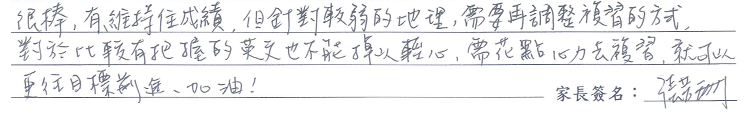 很棒，有維持住成績，但針對較弱的地理，需要再調整複習的方式，
對於比較有把握的英文也不能掉以輕心，需花點心力去複習，就可以
更往目標前進、加油！
家長簽名：張